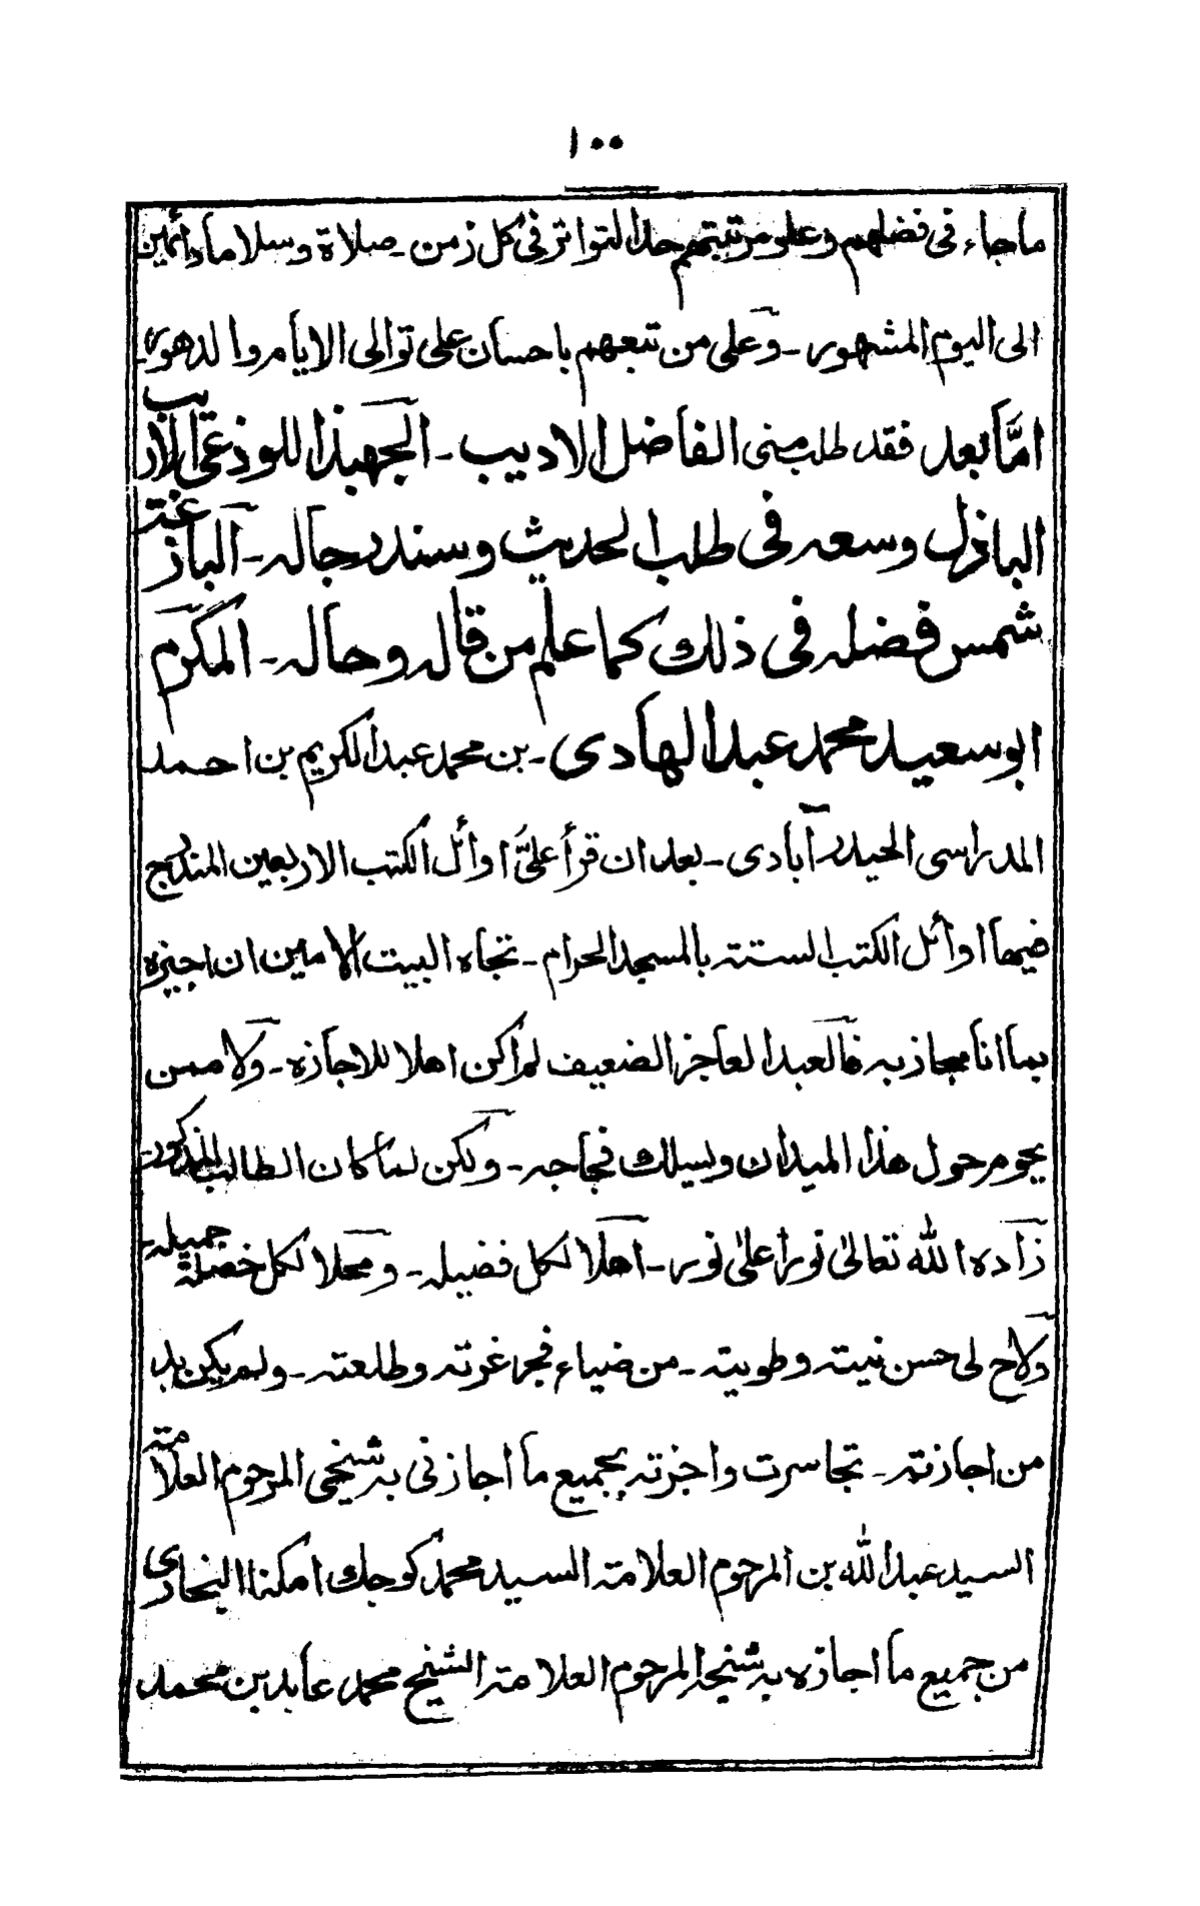 ١٠٠
ما جاء فى فضلهم وعلو مرتبتهم حد التواتر فى كل زمن ـ صلاة وسلاما دائمين
الى اليوم المشهور ـ وعلى من تبعهم باحسان على توالى الايام والدهور ـ
امَّا بعد فقد طلب منى الفاضل الاديب ـ الجهبذ اللوذعى الاريب
الباذل وسعه فى طلب الحديث وسند رجاله ـ البازغة
شمس فضله فى ذلك كما علم من قاله وحاله ـ المكرم
ابو سعيد محمد عبد الهادى ـ بن محمد عبد الكريم بن احمد
المدراسى الحيدر آبادى ـ بعد ان قرأ علىَّ اوائل الكتب الاربعين المندرج
فيها اوائل الكتب الستته بالمسجد الحرام ـ تجاه البيت الامين ان اجيزه
بما انا مجاز به فالعبد العاجز الضعيف لم اكن اهلا للاجازه ـ ولا ممن
يحوم حول هذا الميدان ويسلك فجاجه ـ ولكن لما كان الطالب المذكور
زاده الله تعالىٰ نورا علىٰ نور ـ اهلا لكل فضيله ـ ومحلا لكل خصلة جميله ـ
ولاح لى حسن نيته وطويته ـ من ضياء فجر غرته وطلعته ـ ولم يكن بد
من اجازته ـ تجاسرت واجزته بجميع ما اجازنى به شيخى المرحوم العلامته
السيد عبد الله بن المرحوم العلامته السيد محمد كوجك امكنا البخارى
من جميع ما اجازه به شيخه المرحوم العلامته الشيخ محمد عابد بن محمد